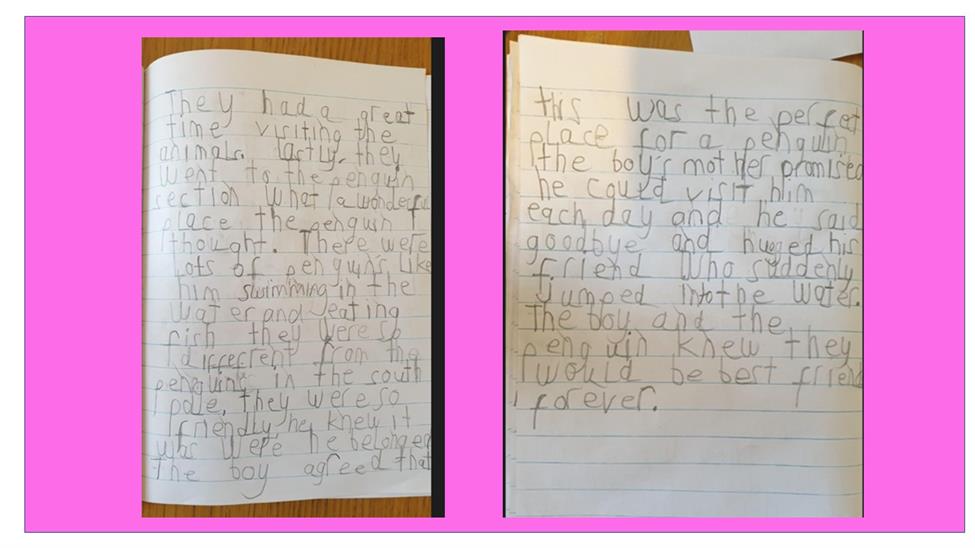 They had a great
time visiting the
animals. lastly, they
went to the penguin
section What a wonderful
place the penguin
thought. There were
Lots of penguins like
him swimming in the
water and eating
fish they were so
differrent from the
penguins in the south
pole, they were so
friendly, he knew it
was were he belonged
the boy agreed that
this was the perfect
place for a penguin
the boy's mother promised
he could visit him
each day and he said
goodbye and hugged his
friend who suddenly
jumped into the water.
The boy and the
penguin knew they
would be best friend
forever.